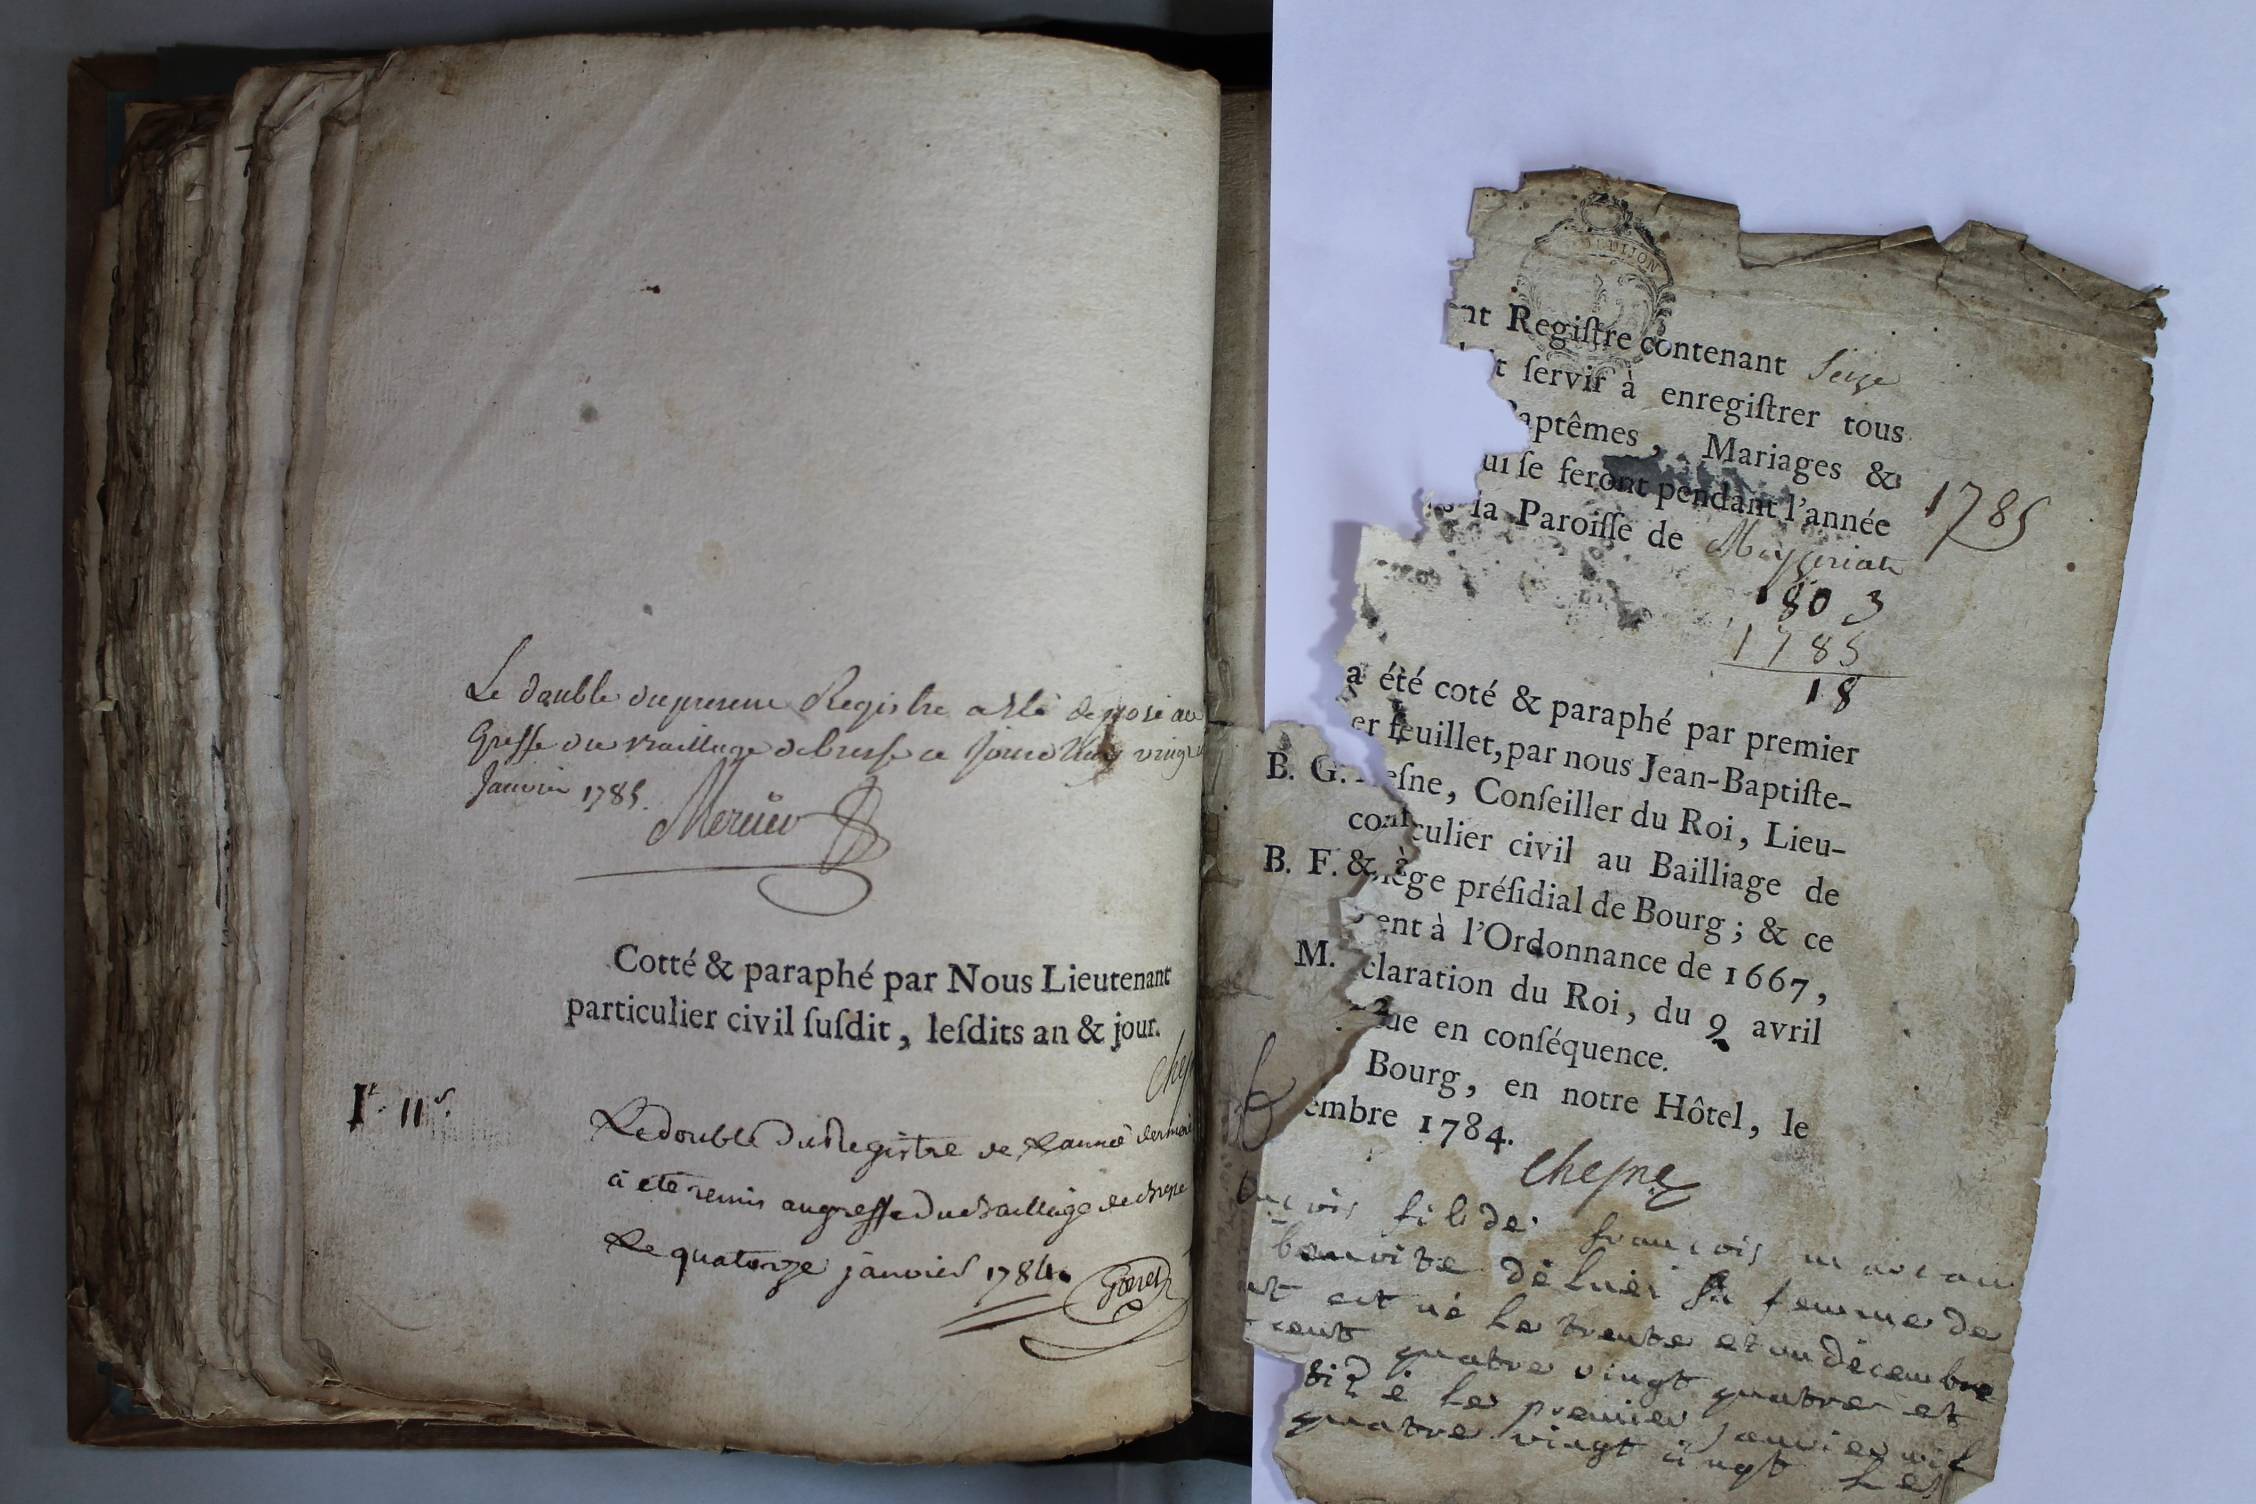 Le double du present Registre a esté deposé au
Greffe du Bailliage de bresse ce Jourd'huy vingt
Janvier 1785.
Mercier
Cotté & paraphé par Nous Lieutenant
particulier civil ſuſdit, leſdits an & jour.
Cheſn
Le double du Registre de L'année derniere
a été remis au greffe du Bailliage de Bresse
Le quatorze janvier 1784.
nt Regiſtre contenant Seize
t ſervir à enregiſtrer tous
Baptêmes, Mariages &
ui ſe feront pendant l'année 1785
la Paroiſſe de
1803
1785
18
a été coté & paraphé par premier
er feuillet, par nous Jean-Baptiſte-
eſne, Conſeiller du Roi, Lieu-
culier civil au Bailliage de
iège préſidial de Bourg; & ce
ent à l'Ordonnance de 1667,
claration du Roi, du 9 avril
ue en conſéquence.
Bourg, en notre Hôtel, le
embre 1784.
Cheſne
B. G.
B. F. &
M.
ançois fils de françois
benoite sa femme de
est né le trente et un décembre
cent quatre vingt quatre et
le premier janvier mil
quatre vingt cinq Le